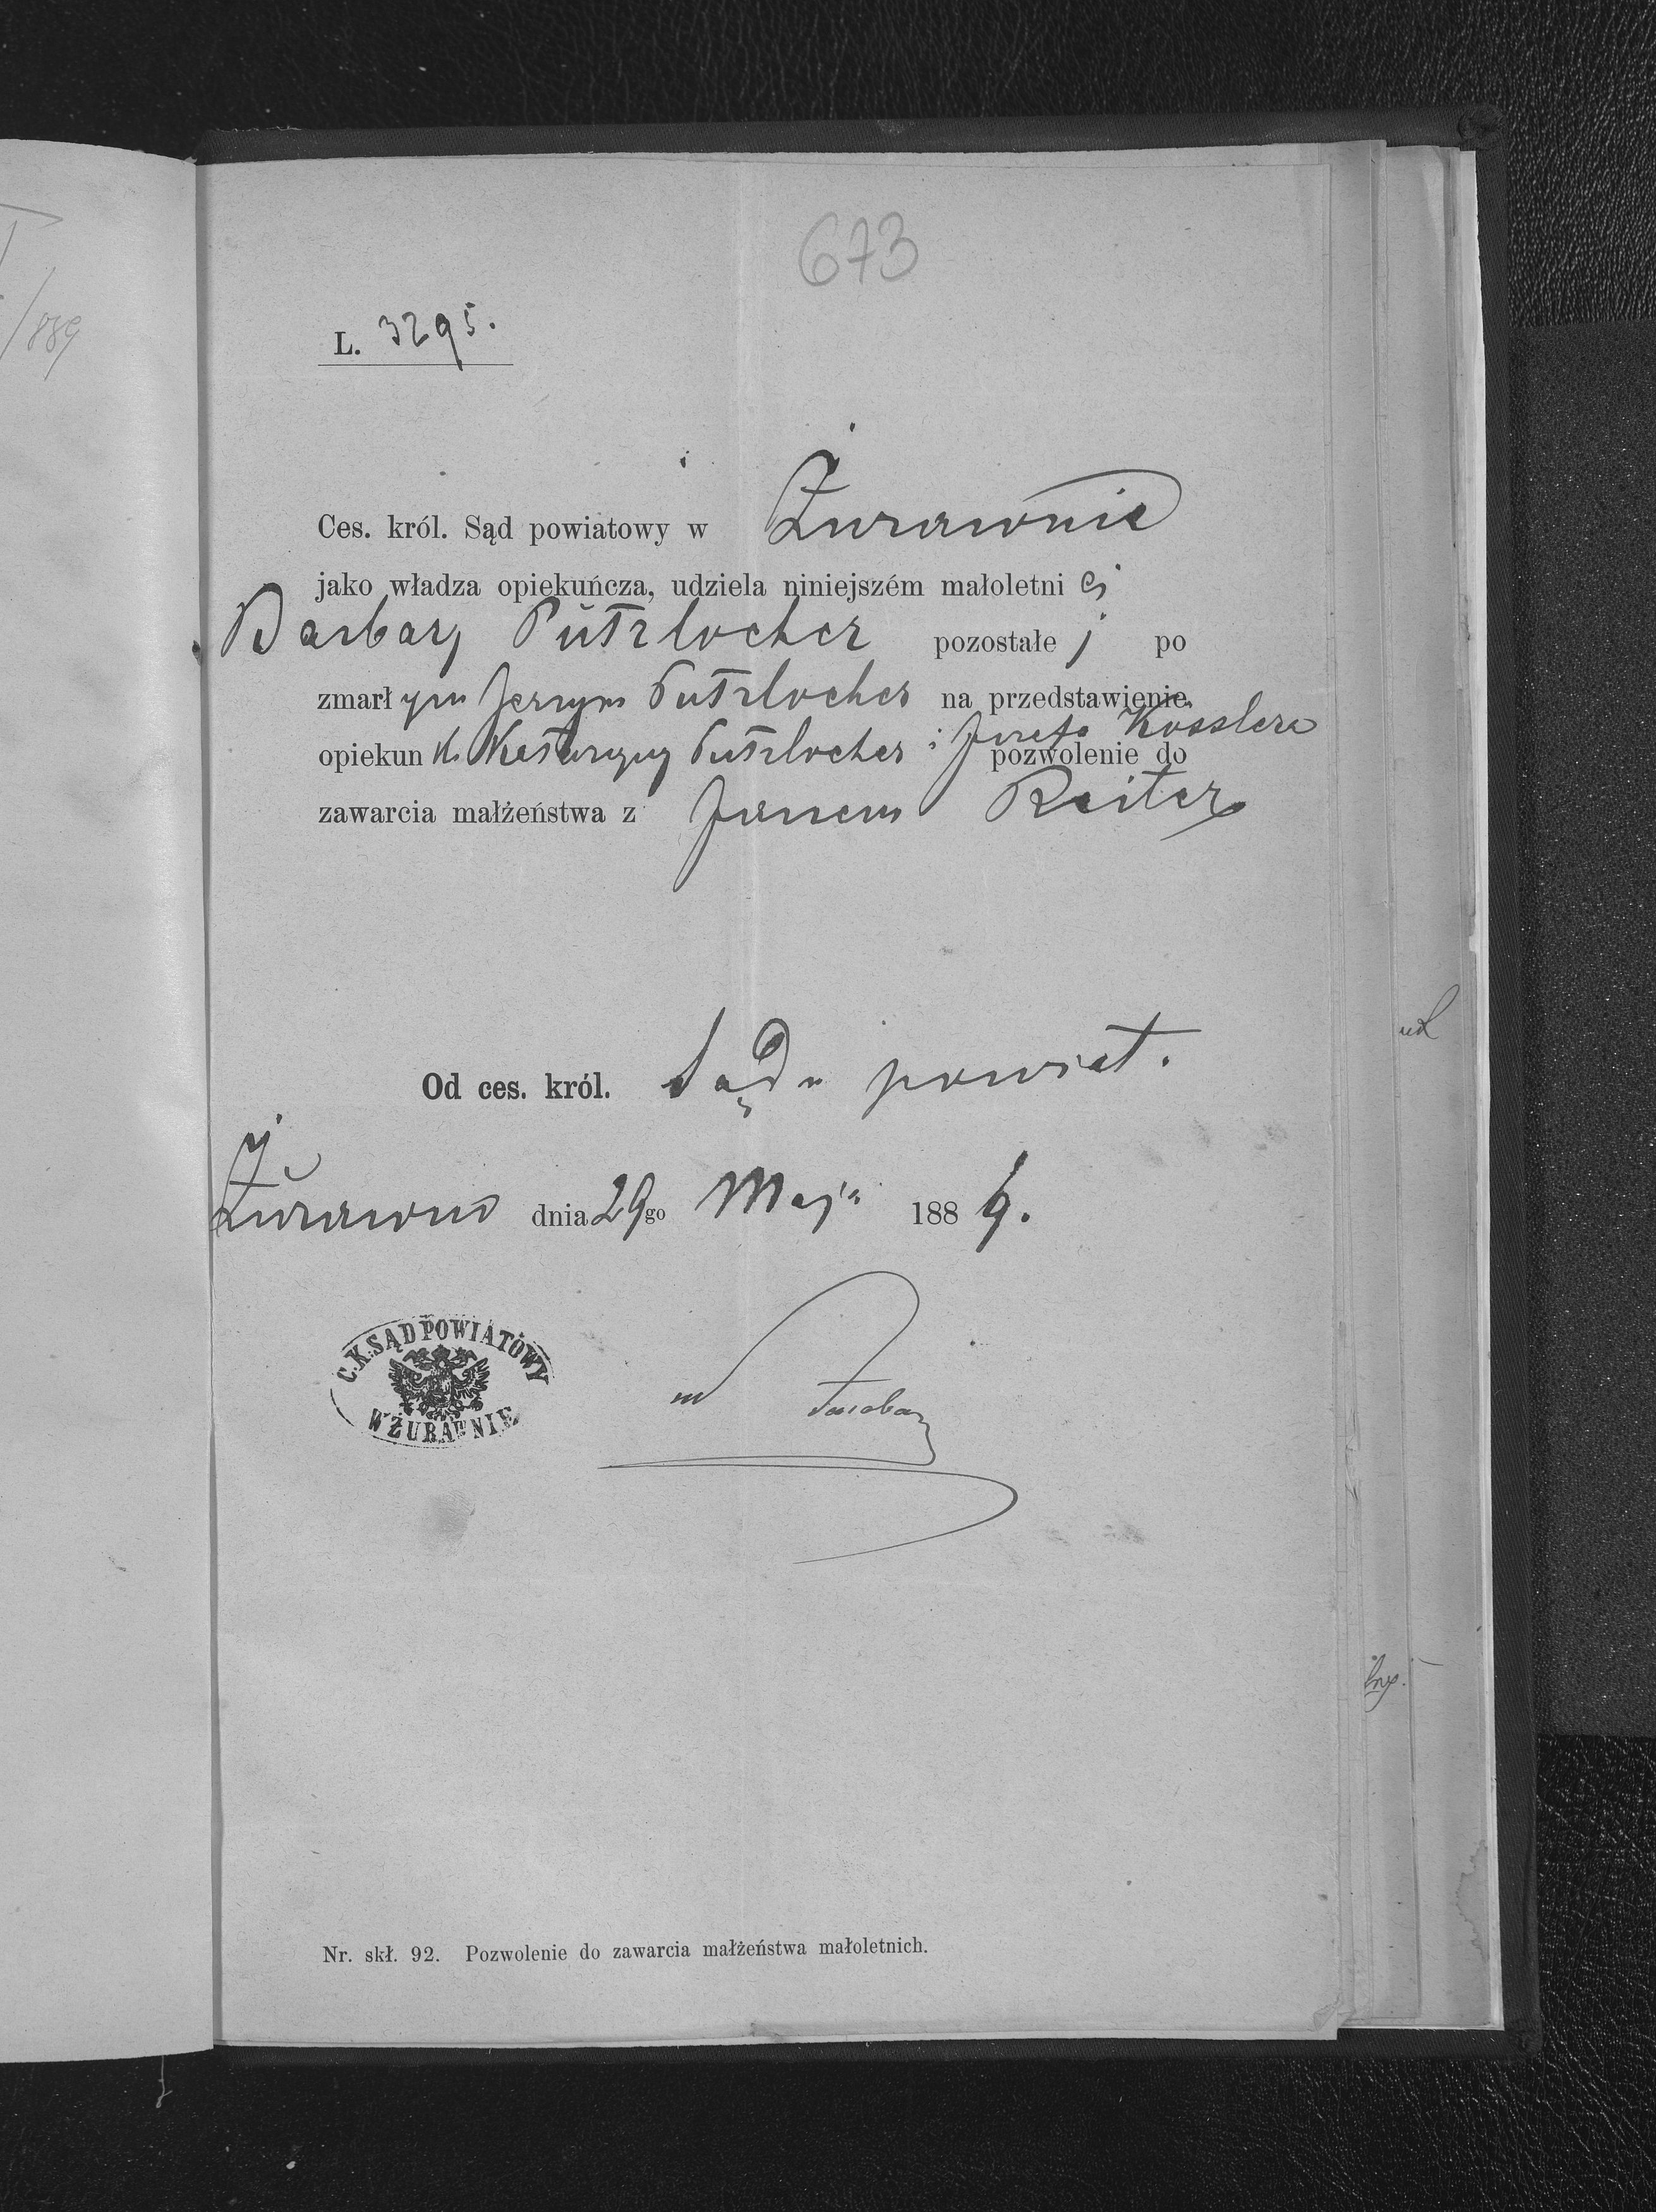 /889
673
L. 3295.
Ces. król. Sąd powiatowy w Żurawnie
jako władza opiekuńcza, udziela niniejszém małoletni ej
Barbary Pütrlocher pozostałe j po
zmarł ym Jerzym Putrlocher na przedstawienie
opiekun Katarzyny Putrlocher i Józefa Kosslera pozwolenie do
zawarcia małżeństwa z Janem Reiter
Od ces. król. Sądu powiat.
Żurawno dnia 29go Maja 188
C. K. SĄD POWIATOWY
W ŻURAWNIE
Nr. skł. 92. Pozwolenie do zawarcia małżeństwa małoletnich.